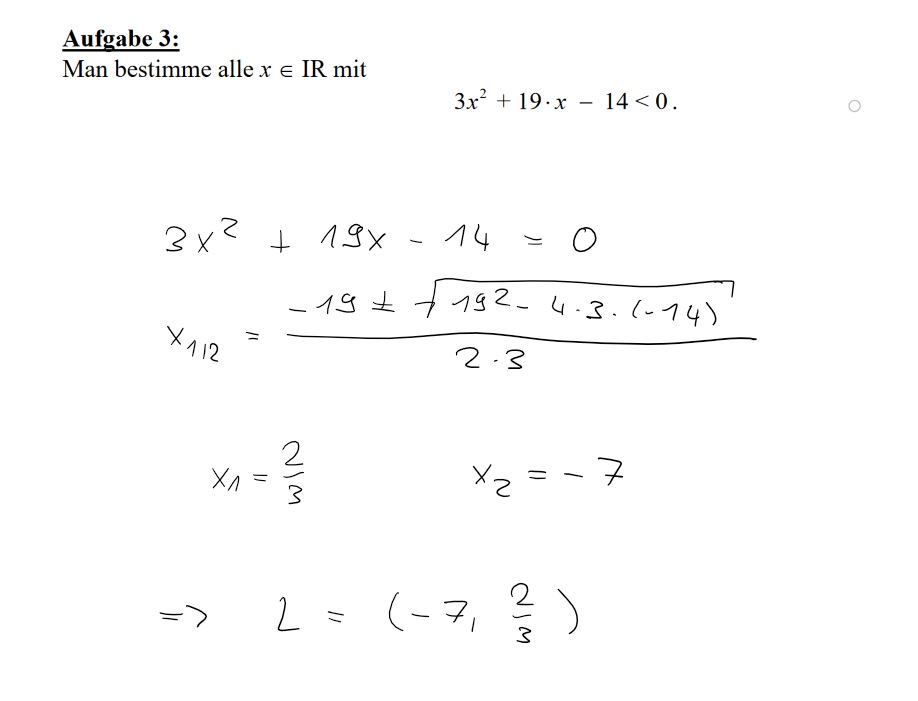 Aufgabe 3:
Man bestimme alle x ∈ IR mit
3x² + 19·x − 14 < 0.
3x² + 19x - 14 = 0
x₁/₂ = (-19 ± √(19² - 4·3·(-14))) / (2·3)
x₁ = 2/3 x₂ = -7
=> L = (-7, 2/3)